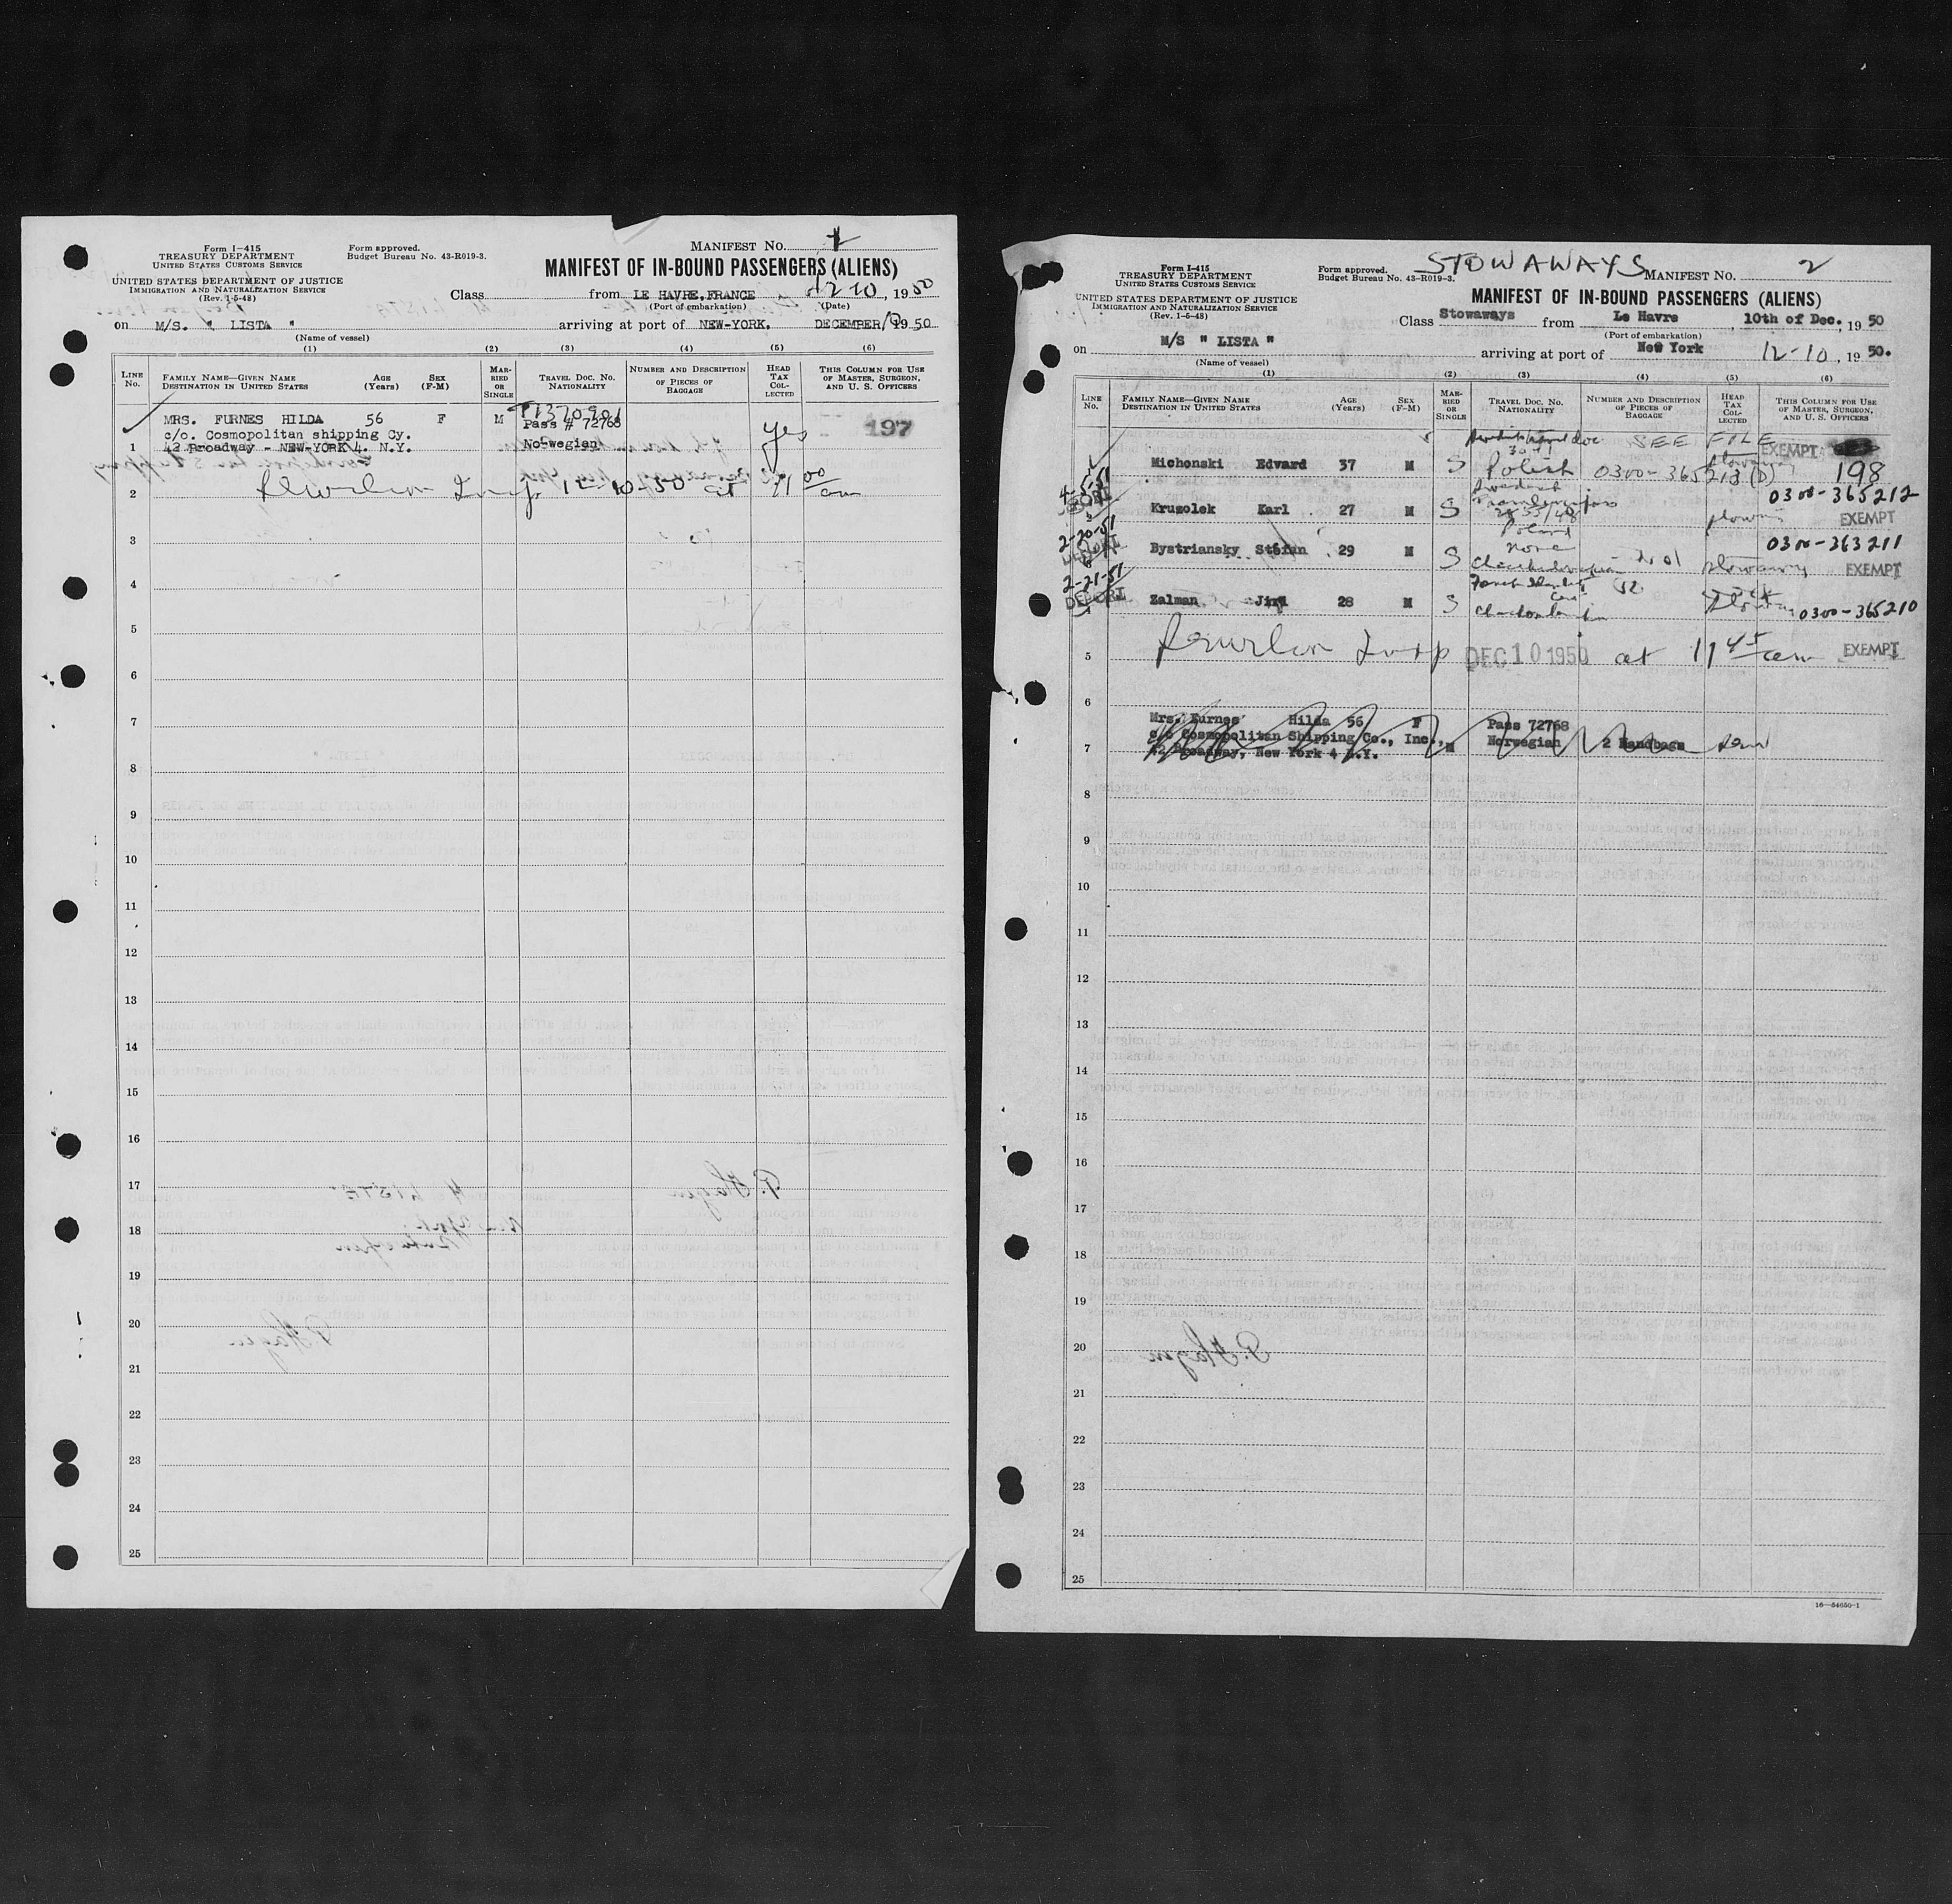 Form I-415
TREASURY DEPARTMENT
UNITED STATES CUSTOMS SERVICE
UNITED STATES DEPARTMENT OF JUSTICE
IMMIGRATION AND NATURALIZATION SERVICE
(Rev. 1-5-48)
Form approved.
Budget Bureau No. 43-R019-3.
MANIFEST No. 1
MANIFEST OF IN-BOUND PASSENGERS (ALIENS)
Class from LE HAVRE, FRANCE 12-10, 1950
(Port of embarkation) (Date)
on M/S. " LISTA " arriving at port of NEW-YORK. DECEMBER/ 1950
(Name of vessel)
(1) (2) (3) (4) (5) (6)
LINE No. FAMILY NAME—GIVEN NAME DESTINATION IN UNITED STATES AGE (Years) SEX (F-M) MARRIED OR SINGLE TRAVEL DOC. NO. NATIONALITY NUMBER AND DESCRIPTION OF PIECES OF BAGGAGE HEAD TAX COLLECTED THIS COLUMN FOR USE OF MASTER, SURGEON, AND U. S. OFFICERS
MRS. FURNES HILDA 56 F M Pass # 72768 yes 197
c/o. Cosmopolitan shipping Cy.
1 42 Broadway - NEW-YORK 4. N.Y. Norwegian
2 12-10-50 at 11 00 am
3
4
5
6
7
8
9
10
11
12
13
14
15
16
17
18
19
20
21
22
23
24
25
Form I-415
TREASURY DEPARTMENT
UNITED STATES CUSTOMS SERVICE
UNITED STATES DEPARTMENT OF JUSTICE
IMMIGRATION AND NATURALIZATION SERVICE
(Rev. 1-5-48)
Form approved.
Budget Bureau No. 43-R019-3.
STOWAWAYS MANIFEST No. 2
MANIFEST OF IN-BOUND PASSENGERS (ALIENS)
Class Stowaways from Le Havre, 10th of Dec., 1950
(Port of embarkation)
on M/S " LISTA " arriving at port of New York 12-10, 1950.
(Name of vessel)
(1) (2) (3) (4) (5) (6)
LINE No. FAMILY NAME—GIVEN NAME DESTINATION IN UNITED STATES AGE (Years) SEX (F-M) MARRIED OR SINGLE TRAVEL DOC. NO. NATIONALITY NUMBER AND DESCRIPTION OF PIECES OF BAGGAGE HEAD TAX COLLECTED THIS COLUMN FOR USE OF MASTER, SURGEON, AND U. S. OFFICERS
SEE FILE EXEMPT
Michonski Edvard 37 M S Polish 0300-365213 (D) 198
4-5-51 0300-365212
Kruzolek Karl 27 M S Poland EXEMPT
2-20-51 none 0300-363211
Bystriansky Stefan 29 M S stowaway EXEMPT
2-21-51
DEPORT Zalman Jiri 28 M S 0300-365210
5 DEC 10 1950 at 11 45 am EXEMPT
6
Mrs. Furnes Hilda 56 F Pass 72768
c/o Cosmopolitan Shipping Co., Inc., M Norwegian 2 Handbags
7 42 Broadway, New York 4 N.Y.
8
9
10
11
12
13
14
15
16
17
18
19
20
21
22
23
24
25
16—54650-1